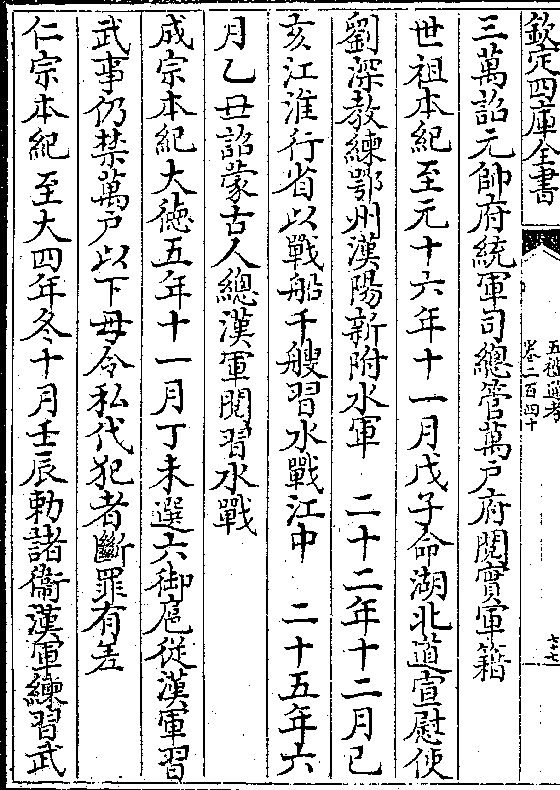 欽定四庫全書
五禮通考
卷二百四十
三萬詔元帥府統軍司總管萬戸府閱實軍籍
世祖本紀至元十六年十一月戊子命湖北道宣慰使
劉深教練鄂州漢陽新附水軍　二十二年十二月已
亥江淮行省以戰船千艘習水戰江中　二十五年六
月乙丑詔蒙古人總漢軍閱習水戰
成宗本紀大徳五年十一月丁未選六御扈從漢軍習
武事仍禁萬户以下毋令私代犯者斷罪有差
仁宗本紀至大四年冬十月壬辰勅諸衞漢軍練習武